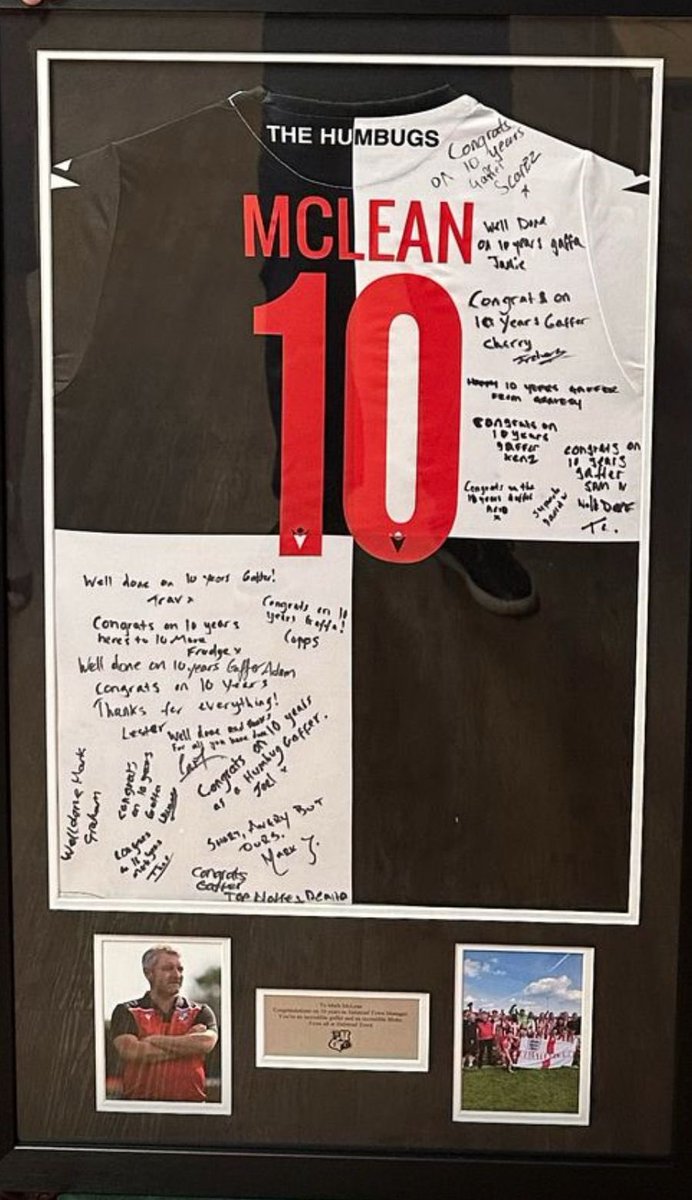 THE HUMBUGS
MCLEAN
10
Congrats
on 10 years
Gaffer
Well Done
on 10 years gaffa
Jamie
Congrats on
10 Years Gaffer
Cherry
HAPPY 10 YEARS GAFFER
FROM
Congrats on
10 years
gaffer
Kenz
congrats on
10 years
gaffer
SAM
Well Done
Congrats on the
10 years Gaffer
Well done on 10 years Gaffer!
Trav x
Congrats on 10
years Gaffa!
Capps
Congrats on 10 years
heres to 10 More
Frudge x
Well done on 10 years Gaffer Adam
Congrats on 10 Years
Thanks for everything!
Lester
Well done and thanks
For all you have done
Congrats on 10 years
as a Humbug Gaffer.
Joel x
Well done Mark
Graham
Congrats
on 10 years
Gaffer
SHORT, ANGRY BUT
OURS.
MARK J.
Congrats
Gaffer
To Mark McLean
Congratulations on 10 years as Halstead Town Manager
You're an incredible gaffer and an incredible
From all at Halstead Town